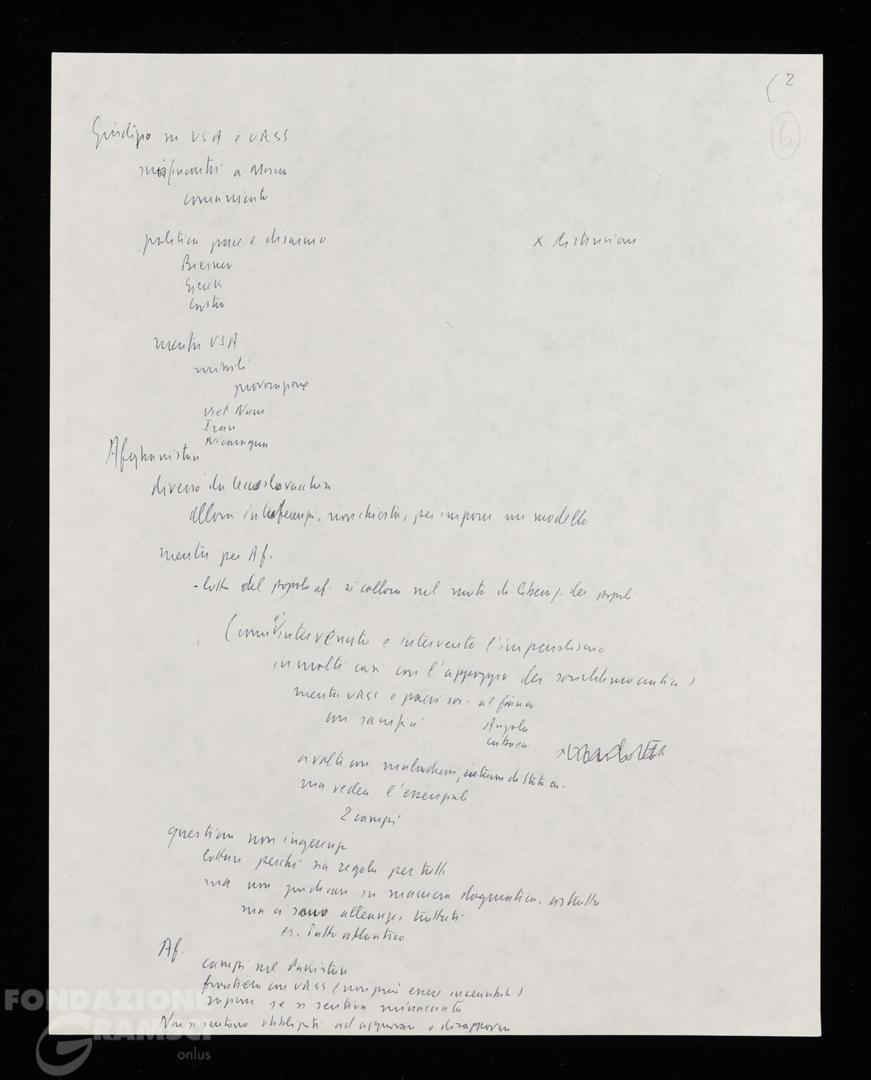 (2
6
Giudizio su USA e URSS
incontri a Mosca
comunicato
politica pace e disarmo
x distensione
Breznev
Gierek
Castro
mentre USA
missili
provocazione
Viet Nam
Iran
Nicaragua
Afghanistan
diverso da Cecoslovacchia
allora interferenza, non chiesta, per imporre un modello
mentre per Af.
- lotta del popolo af. si colloca nel moto di liberaz. dei popoli
(com'è intervenuto e interviene l'imperialismo
in molti casi con l'appoggio dei socialdemocratici)
mentre URSS e paesi soc. al fianco
con sacrifici
Angola
a volte con
ma vedere l'essenziale
2 campi
questione non ingerenza
lottare perché sia regola per tutti
ma non giudicare in maniera dogmatica, astratta
ma ci sono alleanze, trattati
es. Patto atlantico
Af.
campi nel Pakistan
frontiera con URSS (non può essere incendiata)
se si sentiva minacciata
Non si sentono obbligati ad approvare o disapprovare
FONDAZIONE
GRAMSCI
onlus